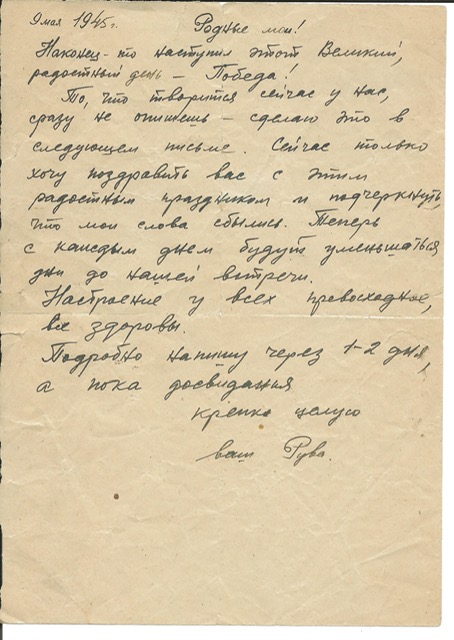 9 мая 1945 г.
Родные мои!
Наконец-то наступил этот Великий,
радостный день – Победа!
То, что творится сейчас у нас,
сразу не опишешь – сделаю это в
следующем письме. Сейчас только
хочу поздравить вас с этим
радостным праздником и подчеркнуть,
что мои слова сбылись. Теперь
с каждым днем будут уменьшаться
дни до нашей встречи.
Настроение у всех превосходное,
все здоровы.
Подробно напишу через 1-2 дня,
а пока досвидания
крепко целую
ваш Рува.